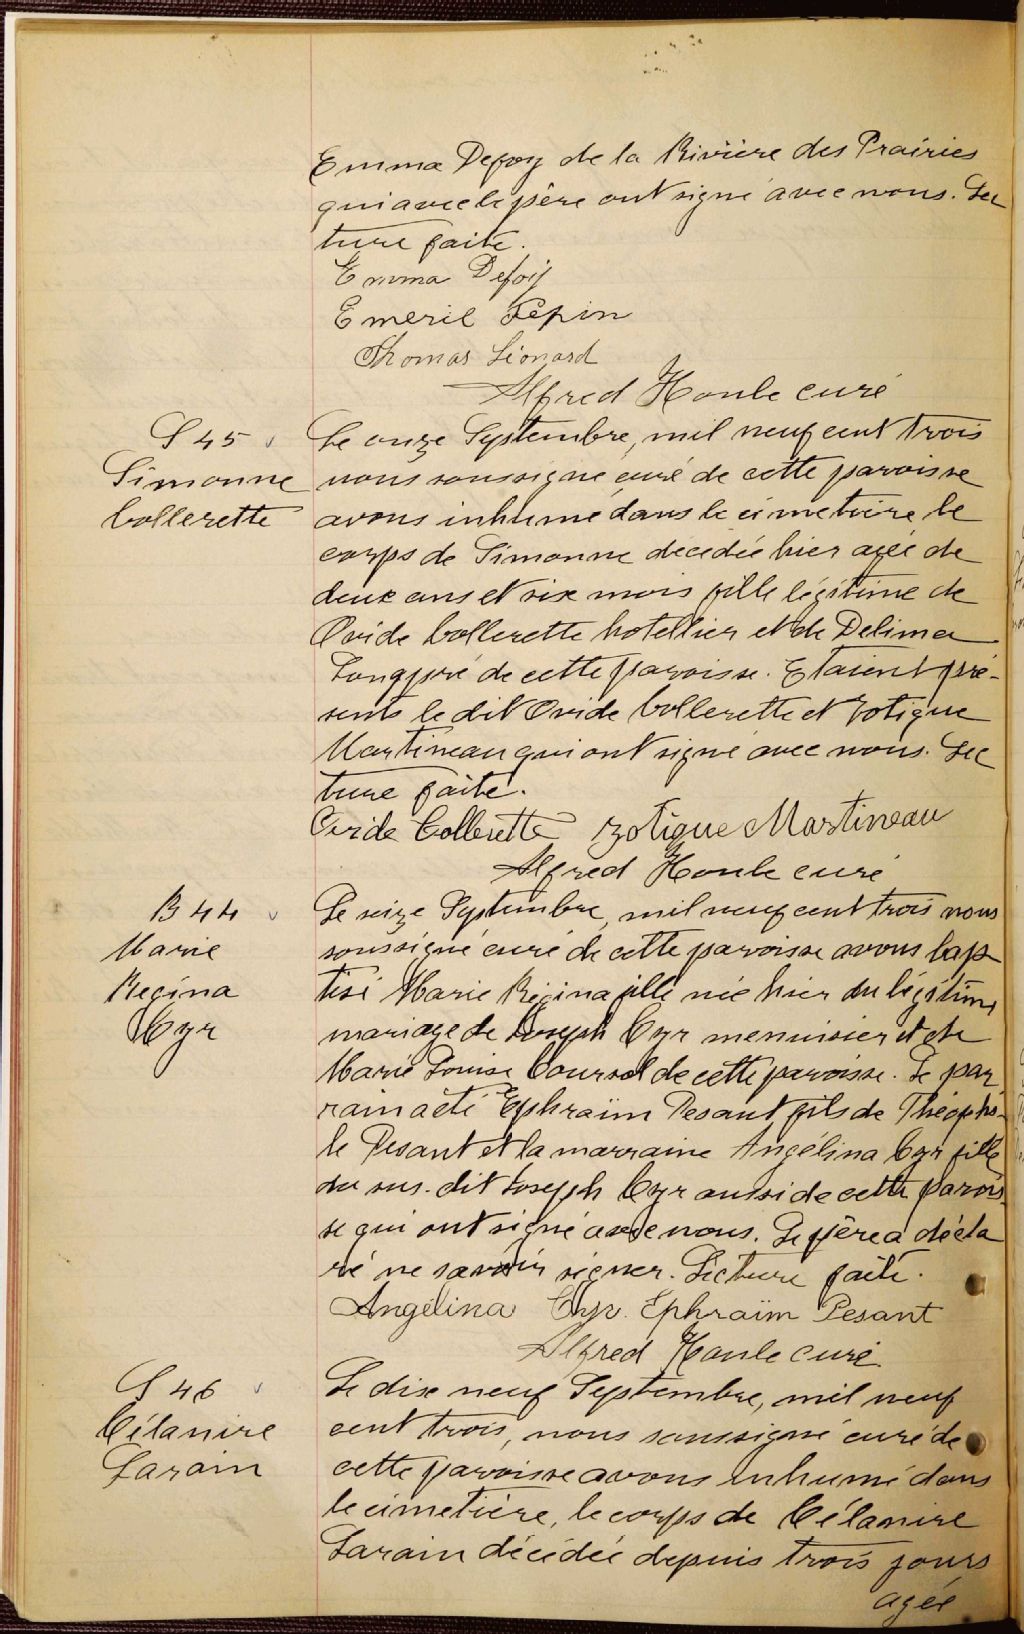 Emma Defoy de la Rivière des Prairies
qui avec le père ont signé avec nous. Lec
ture faite.
Emma Defoy
Emeril Pepin
Thomas Léonard
Alfred Houle curé
S 45
Simonne
Collerette
Le onze Septembre, mil neuf cent trois
nous soussigné curé de cette paroisse
avons inhumé dans le cimetière le
corps de Simonne décédée hier agée de
deux ans et six mois fille légitime de
Ovide Collerette hotellier et de Delima
Longpré de cette paroisse. Etaient pré-
sents le dit Ovide Collerette et Zotique
Martineau qui ont signé avec nous. Lec
ture faite.
Ovide Collerette Zotique Martineau
Alfred Houle curé
B 44
Marie
Regina
Cyr
Le seize Septembre, mil neuf cent trois nous
soussigné curé de cette paroisse avons bap
tisé Marie Régina fille née hier du légitime
mariage de Joseph Cyr menuisier et de
Marie Louise Coursol de cette paroisse. Le par
rain a été Ephraïm Pesant fils de Théophi-
le Pesant et la marraine Angélina Cyr fille
du sus-dit Joseph Cyr aussi de cette parois
se qui ont signé avec nous. Le père a décla
ré ne savoir signer. Lecture faite.
Angélina Cyr. Ephraïm Pesant
Alfred Houle curé
S 46
Célanire
Larain
Le dix neuf Septembre, mil neuf
cent trois, nous soussigné curé de
cette paroisse avons inhumé dans
le cimetière, le corps de Célanire
Larain décédée depuis trois jours
agée